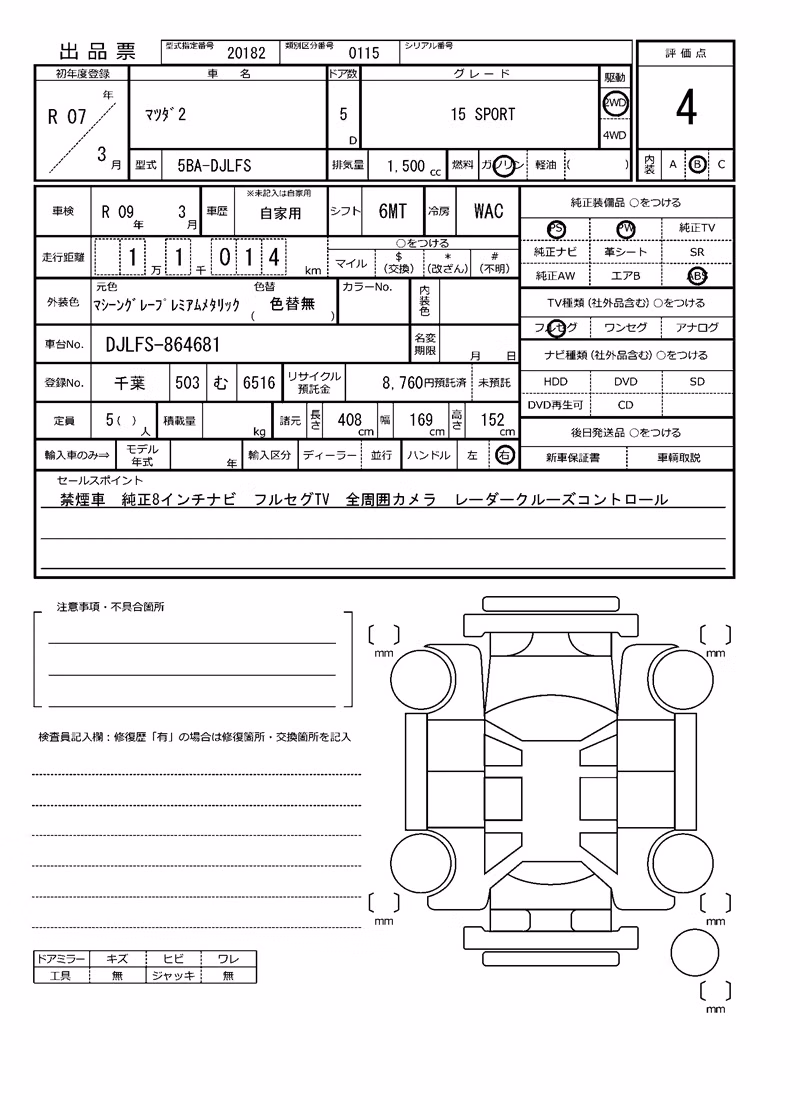 出品票 型式指定番号 20182 類別区分番号 0115 シリアル番号
評価点
初年度登録 車名 ドア数 グレード 駆動
R 07 年 3 月 マツダ2 5 D 15 SPORT 2WD 4WD 4
型式 5BA-DJLFS 排気量 1,500 cc 燃料 ガソリン 軽油 ( ) 内装 A B C
車検 R 09 年 3 月 車歴 ※未記入は自家用 自家用 シフト 6MT 冷房 WAC
走行距離 1 万 1 千 0 1 4 km
○をつける
マイル $ (交換) * (改ざん) # (不明)
外装色 元色 マシーングレープレミアムメタリック 色替 ( 色替無 ) カラーNo. 内装色
車台No. DJLFS-864681 名変期限 月 日
登録No. 千葉 503 む 6516 リサイクル預託金 8,760円預託済 未預託
定員 5( ) 人 積載量 kg 諸元 長さ 408 cm 幅 169 cm 高さ 152 cm
輸入車のみ⇒ モデル年式 年 輸入区分 ディーラー 並行 ハンドル 左 右
純正装備品 ○をつける
PS PW 純正TV
純正ナビ 革シート SR
純正AW エアB ABS
TV種類(社外品含む)○をつける
フルセグ ワンセグ アナログ
ナビ種類(社外品含む)○をつける
HDD DVD SD
DVD再生可 CD
後日発送品 ○をつける
新車保証書 車輌取説
セールスポイント
禁煙車 純正8インチナビ フルセグTV 全周囲カメラ レーダークルーズコントロール
注意事項・不具合箇所
検査員記入欄:修復歴「有」の場合は修復箇所・交換箇所を記入
ドアミラー キズ ヒビ ワレ
工具 無 ジャッキ 無
mm
mm
mm
mm
mm